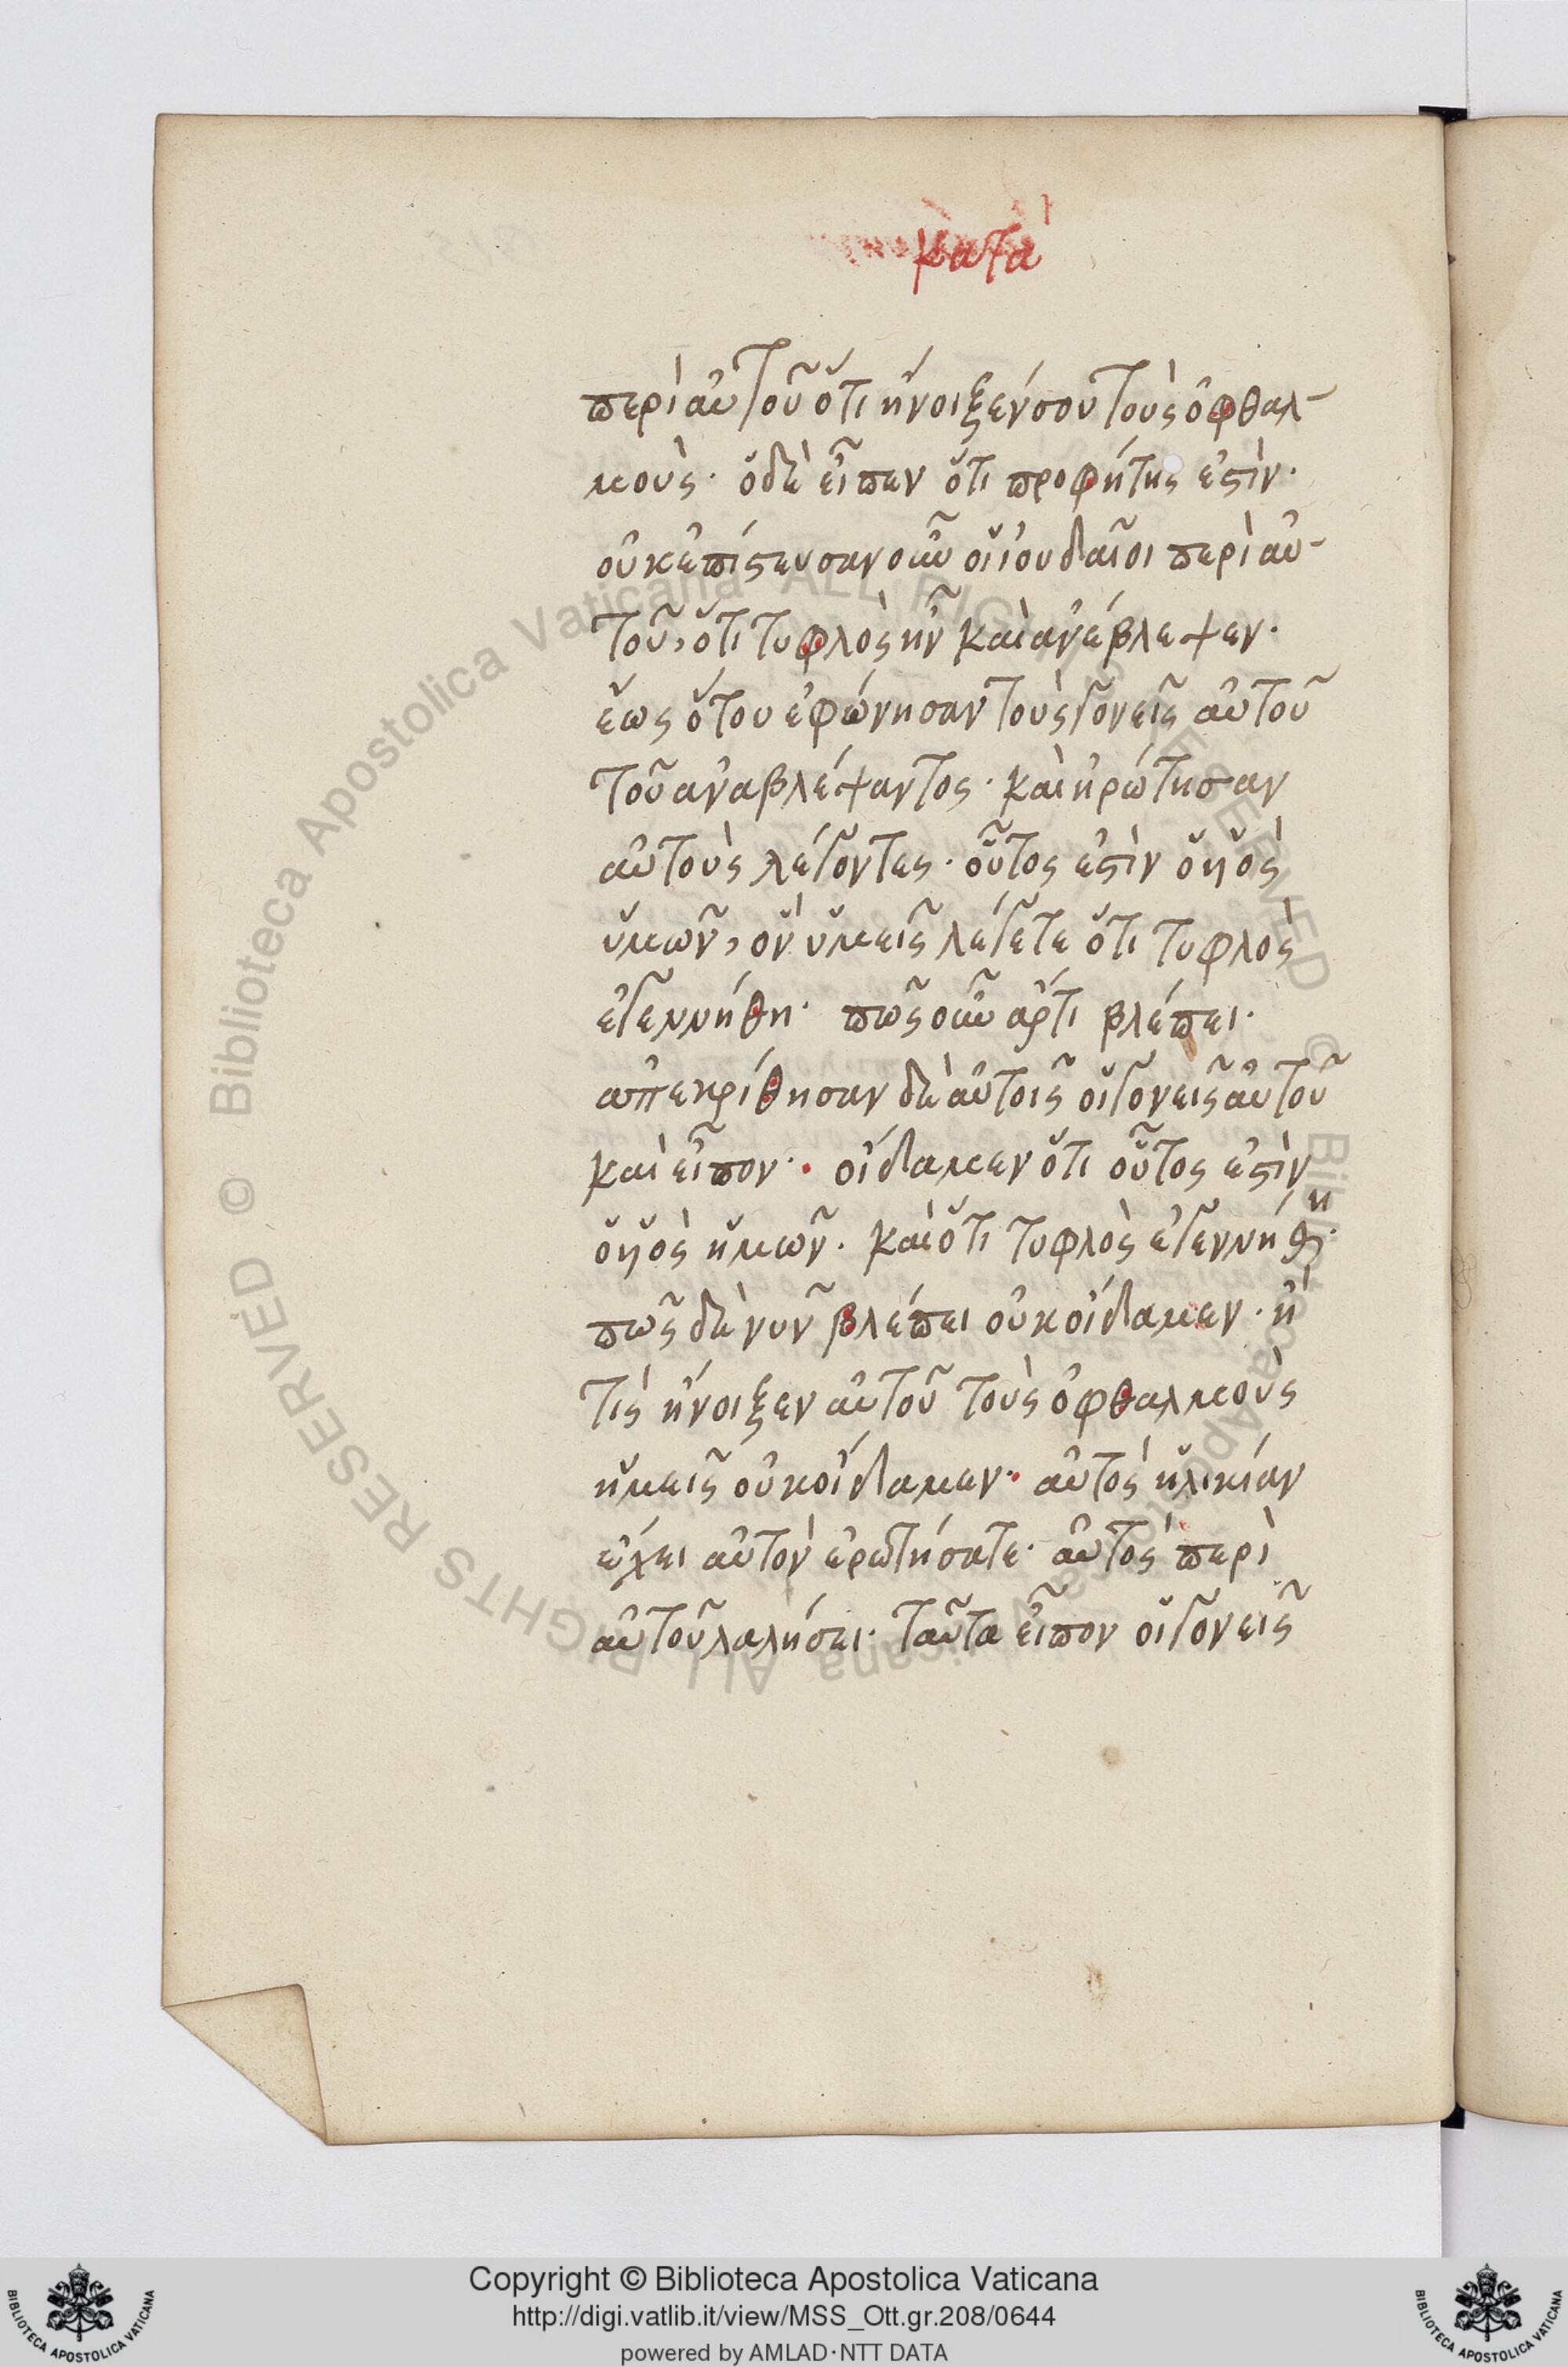 κατὰ
περὶ αὐτοῦ ὅτι ἤνοιξέν σου τοὺς ὀφθαλ-
μούς· ὁ δὲ εἶπεν ὅτι προφήτης ἐστίν·
οὐκ ἐπίστευσαν οὖν οἱ ἰουδαῖοι περὶ αὐ-
τοῦ, ὅτι τυφλὸς ἦν καὶ ἀνέβλεψεν·
ἕως ὅτου ἐφώνησαν τοὺς γονεῖς αὐτοῦ
τοῦ ἀναβλέψαντος· καὶ ἠρώτησαν
αὐτοὺς λέγοντες· οὗτός ἐστὶν ὁ υἱὸς
ὑμῶν, ὃν ὑμεῖς λέγετε ὅτι τυφλὸς
ἐγεννήθη· πῶς οὖν ἄρτι βλέπει·
ἀπεκρίθησαν δὲ αὐτοῖς οἱ γονεῖς αὐτοῦ
καὶ εἶπον· οἴδαμεν ὅτι οὗτος ἐστὶν
ὁ υἱὸς ἡμῶν· καὶ ὅτι τυφλὸς ἐγεννήθη·
πῶς δὲ νῦν βλέπει οὐκ οἴδαμεν· ἢ
τίς ἤνοιξεν αὐτοῦ τοὺς ὀφθαλμοὺς
ἡμεῖς οὐκ οἴδαμεν· αὐτὸς ἡλικίαν
ἔχει αὐτὸν ἐρωτήσατε· αὐτὸς περὶ
αὐτοῦ λαλήσει· ταῦτα εἶπον οἱ γονεῖς
Biblioteca Apostolica Vaticana ALL RIGHTS RESERVED ©
Copyright © Biblioteca Apostolica Vaticana
http://digi.vatlib.it/view/MSS_Ott.gr.208/0644
powered by AMLAD·NTT DATA
BIBLIOTECA APOSTOLICA VATICANA
BIBLIOTECA APOSTOLICA VATICANA